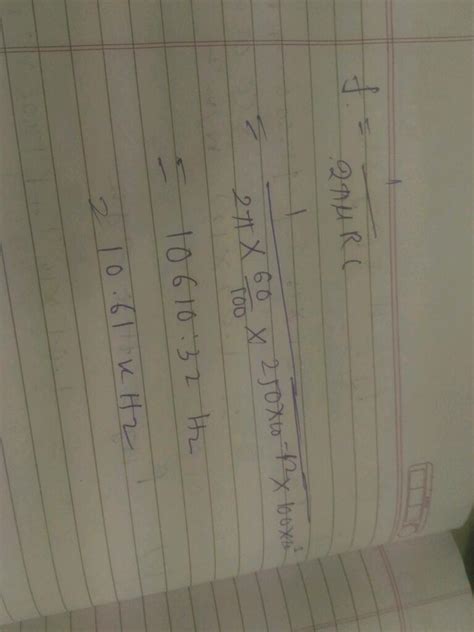 f = 1
2πμRC
= 1
2π × 60/100 × 250×10-12 × 100×10³
= 10610.32 Hz
= 10.61 KHz